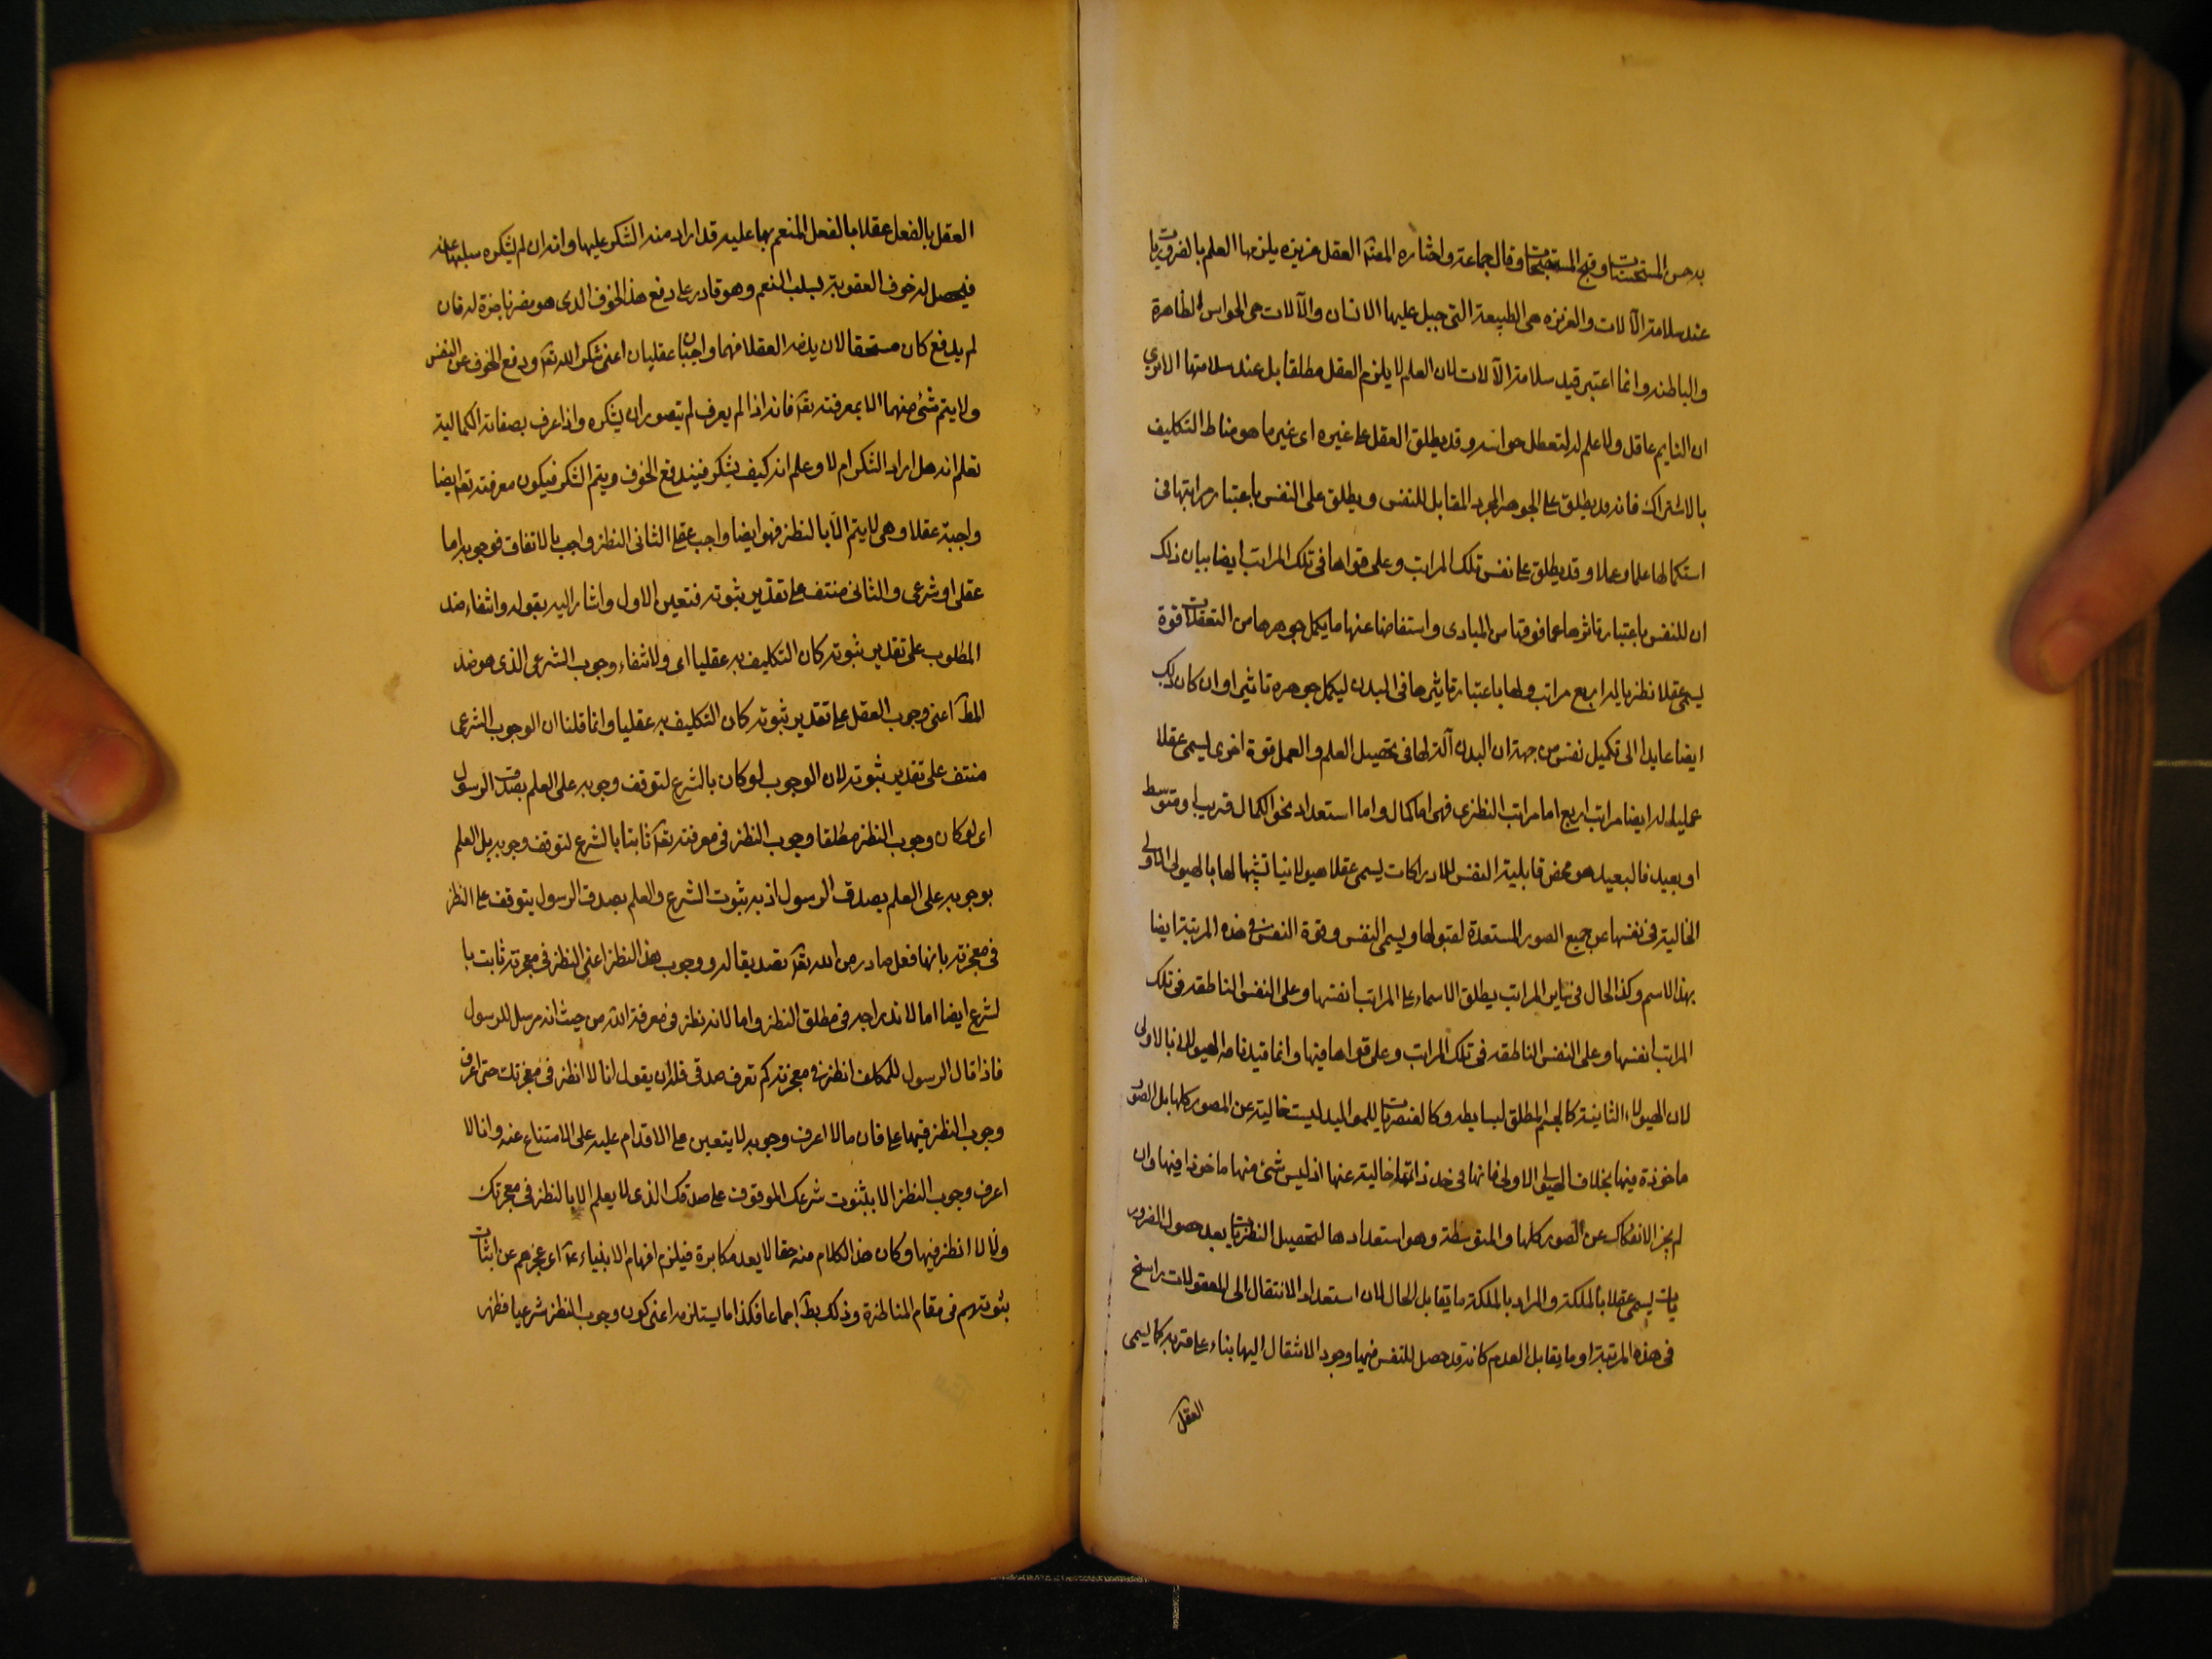 به حسن المستحسنات وقبح المستقبحات وقال جماعة واختاره المصنف العقل غريزه يلزمها العلم بالضروريات
عند سلامة الآلات والغريزه هى الطبيعة التى جبل عليها الانسان والآلات هى الحواس الظاهرة
والباطنه وانما اعتبر قيد سلامة الآلات لان العلم لا يلزم العقل مطلقا بل عند سلامتها الا ترى
ان النايم عاقل ولا علم له لتعطل حواسه وقد يطلق العقل على غيره اى غير ما هو مناط التكليف
بالاشتراك فانه قد يطلق على الجوهر المجرد المقابل للنفس ويطلق على النفس باعتبار مراتبها فى
استكمالها علما وعملا وقد يطلق على نفس تلك المراتب وعلى قواها فى تلك المراتب ايضا بيان ذلك
ان للنفس باعتبار تاثرها عما فوقها من المبادى واستفاضتها عنها ما يكمل جوهرها من التعقلات قوة
يسمى عقلا نظريا له اربع مراتب ولها باعتبار تاثيرها فى البدن ليكمل جوهره تاثيرا وان كان ذلك
ايضا عايدا الى تكميل نفس من جهة ان البدن آلة لها فى تحصيل العلم والعمل قوة اخرى يسمى عقلا
عمليا له ايضا مراتب اربع اما مراتب النظرى فهى اما كمال واما استعداد نحو الكمال قريب او متوسط
او بعيد فالبعيد هو محض قابلية النفس للادراكات يسمى عقلا هيولانيا تشبيها لها بالهيولى الاولى
الخالية فى نفسها عن جميع الصور المستعدة لقبولها ويسمى النفس وقوة النفس فى هذه المرتبة ايضا
بهذا الاسم وكذا الحال فى ساير المراتب يطلق الاسماء على المراتب انفسها وعلى النفس الناطقه فى تلك
المراتب انفسها وعلى النفس الناطقه فى تلك المراتب وعلى قواها فيها وانما قيدنا الهيولى بالاولى
لان الهيولى الثانية كالجسم المطلق لبسايطه وكالعنصريات للمواليد ليست خالية عن الصور كلها بل الصور
ماخوذة فيها بخلاف الهيولى الاولى فانها فى حد ذاتها خالية عنها اذ ليس شئ منها ماخوذا فيها وان
لم يجز الانفكاك عن الصور كلها والمتوسطة وهو استعدادها لتحصيل النظريات بعد حصول الضرور
يات يسمى عقلا بالملكة والمراد بالملكة ما يقابل الحال لان استعداد الانتقال الى المعقولات راسخ
فى هذه المرتبة او ما يقابل العدم كانه قد حصل للنفس فيها وجود الانتقال اليها بناء على قربه كما يسمى
العقل
العقل بالفعل عقلا بالفعل المنعم بها عليه قد اراد منه الشكر عليها وانه ان لم يشكره سلبها عنه
فيحصل له خوف العقوبة بسلب النعم وهو قادر على دفع هذا الخوف الذى هو مضرة ناجزة له فان
لم يدفع كان مستحقا لان يذمه العقلا فهما واجبان عقليان اعنى شكر الله تعه ودفع الخوف عن النفس
ولا يتم شئ منهما الا بمعرفته تعه فانه اذا لم يعرف لم يتصور ان يشكره واذا عرف بصفاته الكمالية
تعلم انه هل اراد الشكر ام لا وعلم انه كيف يشكر فيندفع الخوف ويتم الشكر فيكون معرفته تعه ايضا
واجبة عقلا وهى لا يتم الا بالنظر فهو ايضا واجب عقلا الثانى النظر واجب بالاتفاق فوجوبه اما
عقلى او شرعى والثانى منتف على تقدير ثبوته فتعين الاول واشار اليه بقوله وانتفاء ضد
المطلوب على تقدير ثبوته كان التكليف به عقليا اى ولانتفاء وجوب الشرعى الذى هو ضد
المط اعنى وجوب العقل على تقدير ثبوته كان التكليف به عقليا وانما قلنا ان الوجوب الشرعى
منتف على تقدير ثبوته لان الوجوب لو كان بالشرع لتوقف وجوبه على العلم بصدق الرسول
اى لو كان وجوب النظر مطلقا وجوب النظر فى معرفته تعه ثابتا بالشرع لتوقف وجوبه بل العلم
بوجوبه على العلم بصدق الرسول اذ به ثبوت الشرع والعلم بصدق الرسول يتوقف على النظر
فى معجزته بانها فعل صادر من الله تعه تصديقا له ووجوب هذا النظر اعنى النظر فى معجزته ثابت با
لشرع ايضا اما لاندراجه فى مطلق النظر واما لانه نظر فى معرفة الله من حيث انه مرسل للرسول
فاذا قال الرسول للمكلف انظر فى معجزتى كم تعرف صدقى فله ان يقول انا لا انظر فى معجزتك حتى اعرف
وجوب النظر فيها على فان مالا اعرف وجوبه لا يتعين على الاقدام عليه على الامتناع عنه وانا لا
اعرف وجوب النظر الا بثبوت شرعك الموقوف على صدقك الذى لا يعلم الا بالنظر فى معجزتك
وانا لا انظر فيها وكان هذا الكلام منه حقا لا يعد مكابرة فيلزم افحام الانبياء ع اى عجزهم عن اثبات
بثوتهم فى مقام المناظرة وذلك بط اجماعا فكذا ما يستلزمه اعنى كون وجوب النظر شرعيا فظهر